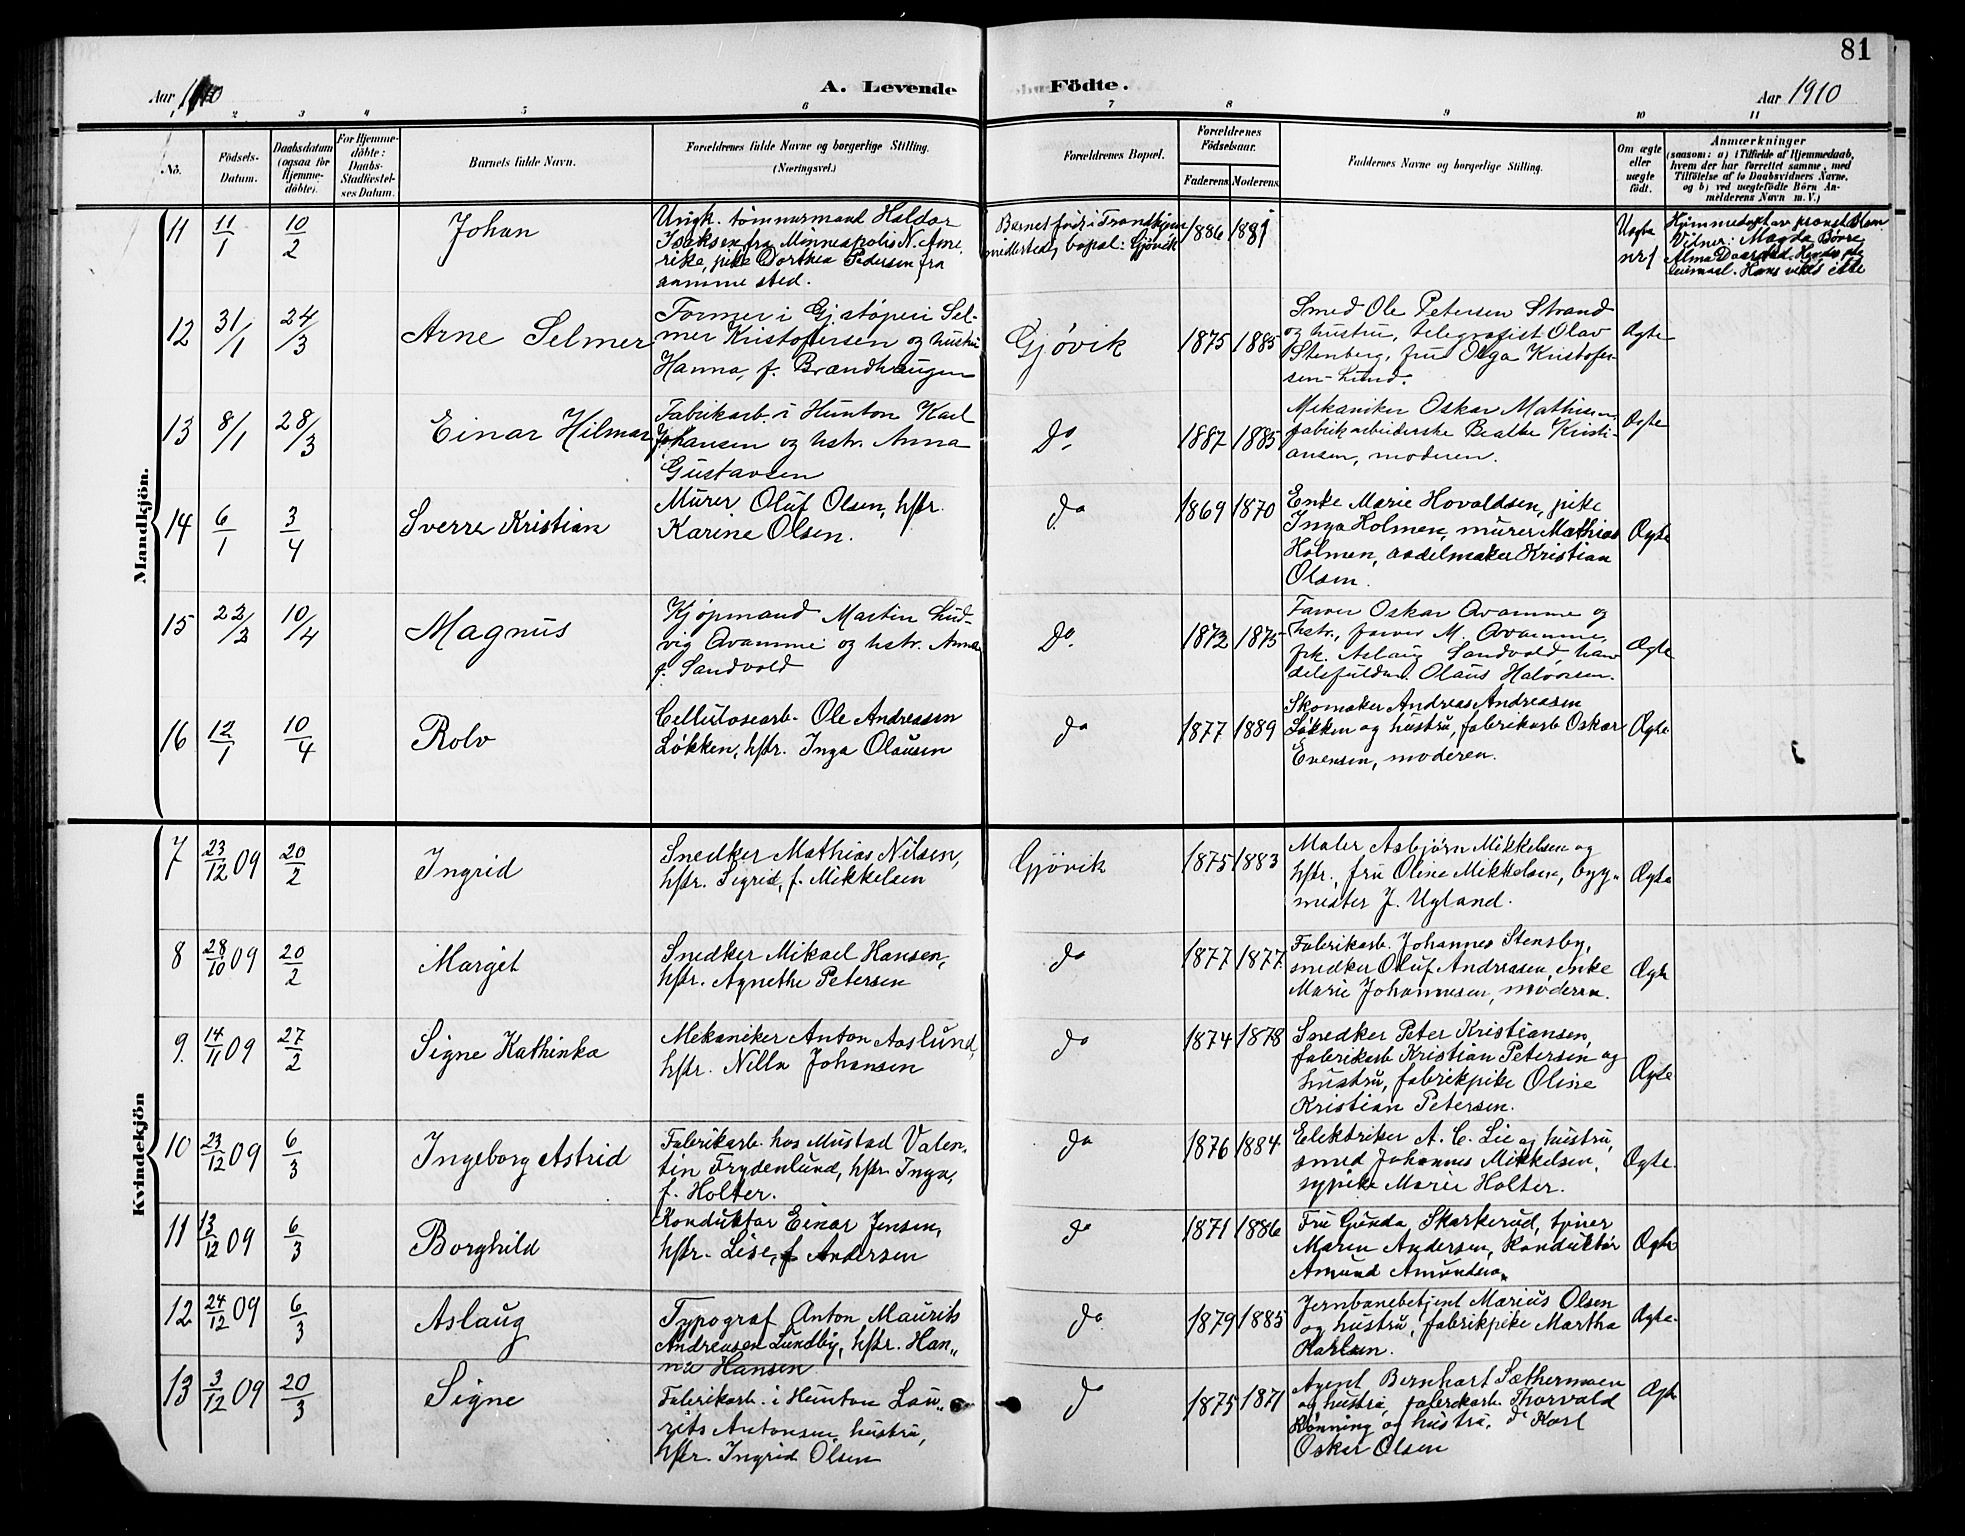 81
Aar 1910
A. Levende
Födte.
Aar 1910
1 2 3 4 5 6 7 8 9 10 11
No.
Födsels-
Datum.
Daabsdatum
(ogsaa for
Hjemme-
döbte).
For Hjemme-
döbte:
Daabs-
Stadfæstel-
ses Datum.
Barnets fulde Navn.
Forældrenes fulde Navne og borgerlige Stilling.
(Næringsvei.)
Forældrenes Bopæl.
Forældrenes
Födselsaar.
Faderens. Moderens.
Faddernes Navne og borgerlige Stilling.
Om ægte
eller
uægte
født.
Anmærkninger
(saasom: a) i Tilfælde af Hjemmedaab,
hvem der har forrettet samme, med
Tilföielse af to Daabsvidners Navne,
og b) ved uægtefödte Börn An-
melderens Navn m. V.)
Mandkjön.
11 11/1 10/2 Johan
Ungk. tømmermand Haldor
Isaksen fra Minneapolis N. Ame
rika, pike Dorthea Pedersen fra
samme sted.
Barnet født i Trondhjem
bopæl: Gjøvik
1886 1881
Uegte
nr 1
Hjemmedøpt av provst Blom
Vitner: Magda Børre
12 31/1 24/3 Arne Selmer
Former i Gj. støperi Sel-
mer Kristofersen og hustru
Hanna, f. Brandhaugen
Gjøvik 1875 1885
Smed Ole Petersen Strand
og hustru, telegrafist Olav
Stenberg, fru Olga Kristofer-
sen-Lund.
Ægte
13 8/1 28/3 Einar Hilmar
Fabrikarb. i Hunton Karl
Johansen og hstr. Anna
Gustavsen
Do. 1887 1885
Mekaniker Oskar Mathisen,
fabrikarbeiderske Beathe Kristi-
ansen, moderen.
Ægte
14 6/1 3/4 Sverre Kristian
Murer Oluf Olsen, hstr.
Karine Olsen.
do 1869 1870
Enke Marie Hovaldsen, pike
Inga Holmen, murer Mathias
Holmen, sadelmaker Kristian
Olsen.
Ægte
15 22/2 10/4 Magnus
Kjøpmand Martin Lud-
vig Avamme og hstr. Anna
f. Sandvold
Do. 1873 1875
Farver Oskar Avamme og
hstr., farver M. Avamme,
frk. Aslaug Sandvold, han
delsfuldm. Olaus Halvorsen.
Ægte
16 12/1 10/4 Rolv
Cellulosearb. Ole Andreasen
Løkken, hstr. Inga Olausen
do 1877 1889
Skomaker Andreas Andreasen
Løkken og hustru, fabrikarb Oskar
Evensen, moderen.
Ægte
Kvindekjön
7 23/12 09 20/2 Ingrid
Snedker Mathias Nilsen,
hstr. Sigrid, f. Mikkelsen
Gjövik 1875 1883
Maler Asbjørn Mikkelsen og
hstr., fru Oline Mikkelsen, byg„
mester J. Ugland.
Ægte
8 28/10 09 20/2 Margit
Snedker Mikael Hansen,
hstr. Agnethe Petersen
do 1877 1877
Fabrikarb. Johannes Stensby,
snedker Oluf Andreasen, enke
Marie Johannesen, moderen.
Ægte
9. 14/11 09 27/2 Signe Kathinka
Mekaniker Anton Aaslund,
hstr. Nilla Johansen
do 1874 1878
Snedker Peter Kristiansen,
fabrikarb Kristian Petersen og
hustru, fabrikpike Oline
Kristian Petersen.
Ægte
10 23/12 09 6/3 Ingeborg Astrid
Fabrikarb. hos Mustad Valen-
tin Frydenlund, hstr. Inga,
f. Holter.
do 1876 1884
Elektriker A. C. Lie og hustru,
smed Johannes Mikkelsen,
sypike Marie Holter.
Ægte
11 13/12 09 6/3 Borghild
Konduktør Einar Jensen,
hstr. Lise, f Andersen
do 1871 1886
Fru Gunda Skarkerud,
Maren Andersen, Konduktør
Amund Amundsen.
Ægte
12 24/12 09 6/3 Aslaug
Typograf Anton Maurits
Andreasen Lundby, hstr. Han„
na Hansen
do 1879 1885
Jernbanebetjent Marius Olsen
og hustru, fabrikpike Martha
Karlsen.
Ægte
13 3/12 09 20/3 Signe
Fabrikarb. i Hunton Lau„
rits Antonsen, hustru,
hstr. Ingrid Olsen
d 1875 1871
Agent Bernhart Sæthermoen
og hustru, fabrikarb. Thorvald
Rønning og hustru, do Karl
Oskar Olsen
Ægte